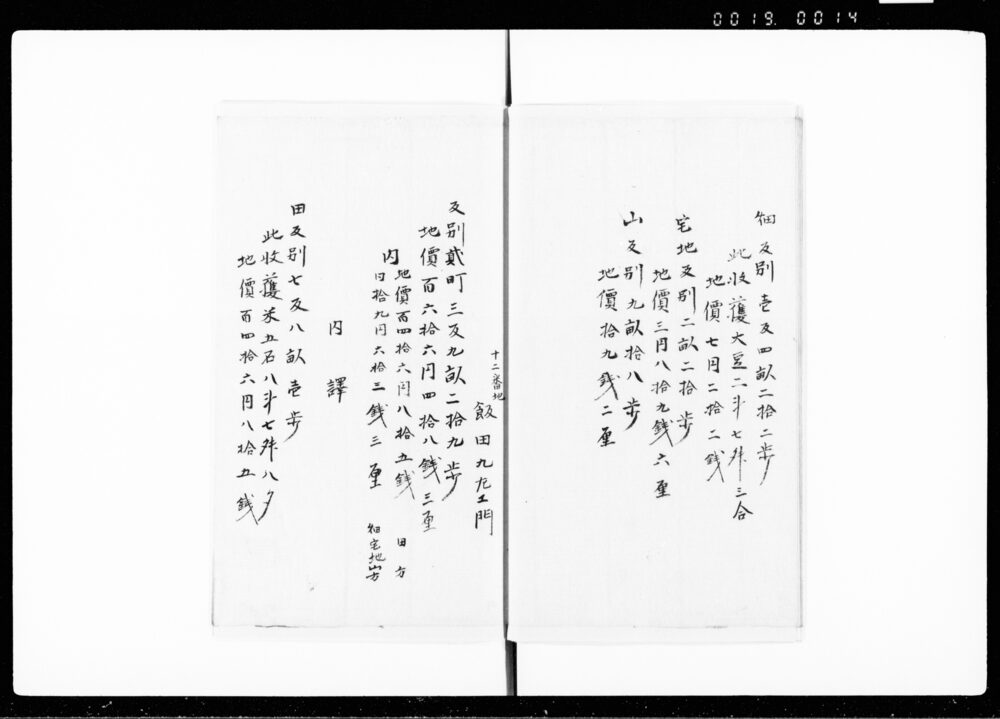 0019.0014
畑反別壱反四畝二拾二歩
此收獲大豆二斗七舛三合
地價七円二拾二銭
宅地反別二畝二拾歩
地價三円八拾九銭六厘
山反別九畝拾八歩
地價拾九銭二厘
十二番地
飯田九左エ門
反別貳町三反九畝二拾九歩
地價百六拾六円四拾八銭三厘
内
地價百四拾六円八拾五銭 田方
同拾九円六拾三銭三厘 畑宅地山方
内譯
田反別七反八畝壱歩
此收獲米五石八斗七舛八夕
地價百四拾六円八拾五銭